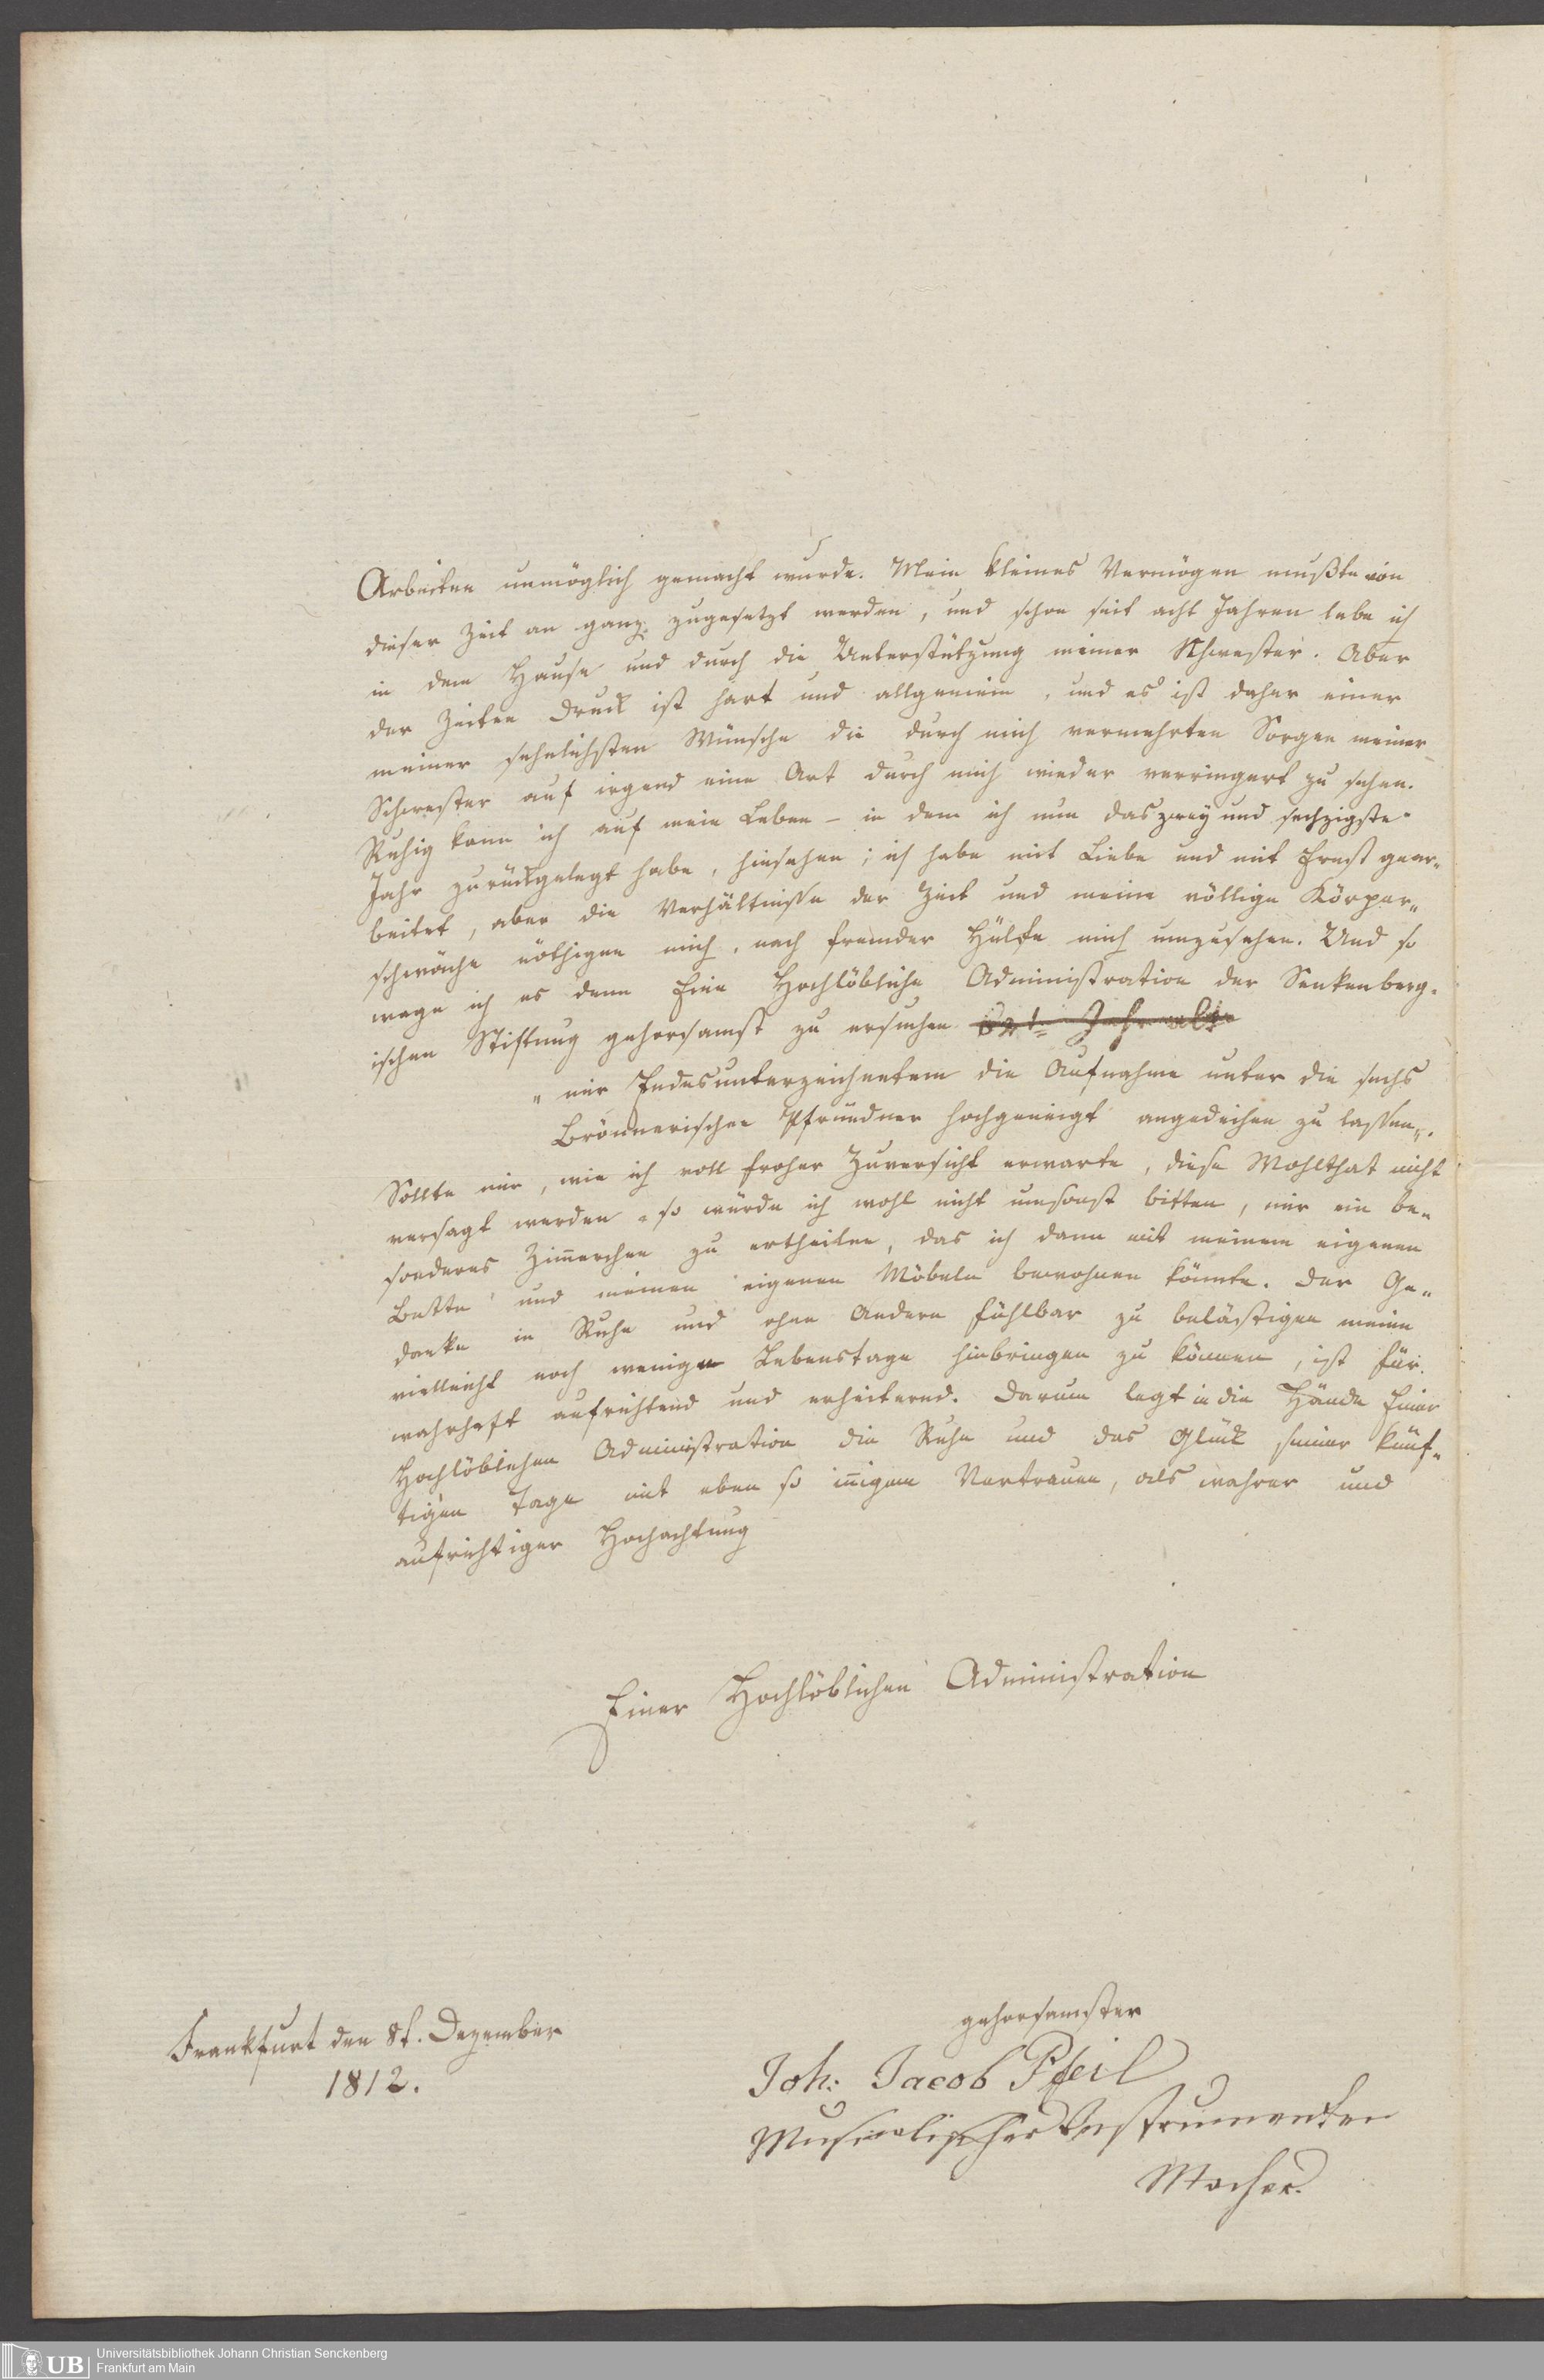 Arbeiten unmöglich gemacht wurde. Mein kleines Vermögen mußte von
dieser Zeit an ganz zugesetzt werden, und schon seit acht Jahren lebe ich
in dem Hause und durch die Unterstützung meiner Schwester. Aber
der Zeiten Druck ist hart und allgemein, und es ist daher einer
meiner sehnlichsten Wünsche die durch mich vermehrten Sorgen meiner
Schwester auf irgend eine Art durch mich wieder verringert zu sehen.
Ruhig kann ich auf mein Leben – in dem ich nun das zwey und sechzigste
Jahr zurückgelegt habe, hinsehen; ich habe mit Liebe und mit Ernst gear„
beitet, aber die Verhältnisse der Zeit und meine völlige Körper„
schwäche nöthigen mich, nach fremder Hülfe mich umzusehen. Und so
wage ich es denn Eine Hochlöbliche Administration der Senkenberg-
ischen Stiftung gehorsamst zu ersuchen 62t. Jahr alt
„ mir Endesunterzeichnetem die Aufnahme unter die sechs
Brönnerischen Pfründner hochgeneigt angedeihen zu lassen„.
Sollte mir, wie ich voll froher Zuversicht erwarte, diese Wohlthat nicht
versagt werden, so würde ich wohl nicht umsonst bitten, mir ein be„
sonderes Zim̄erchen zu ertheilen, das ich dann mit meinem eigenen
Bette und meinen eigenen Möbeln bewohnen könnte. Der Ge„
danke in Ruhe und ohne Andern fühlbar zu belästigen meine
vielleicht noch wenigen Lebenstage hinbringen zu können, ist für
wahrhaft aufrichtend und erheiternd. Darum legt in die Hände Einer
Hochlöblichen Administration die Ruhe und das Glück seiner künf„
tigen Tage mit eben so in̄igem Vertrauen, als wahrer und
aufrichtiger Hochachtung
Einer Hochlöblichen Administration
gehorsamster
Frankfurt den 8t. Dezember
1812.
Joh: Jacob Pfeil
Musicalischer Instrumenten
Macher.
UB Universitätsbibliothek Johann Christian Senckenberg
Frankfurt am Main